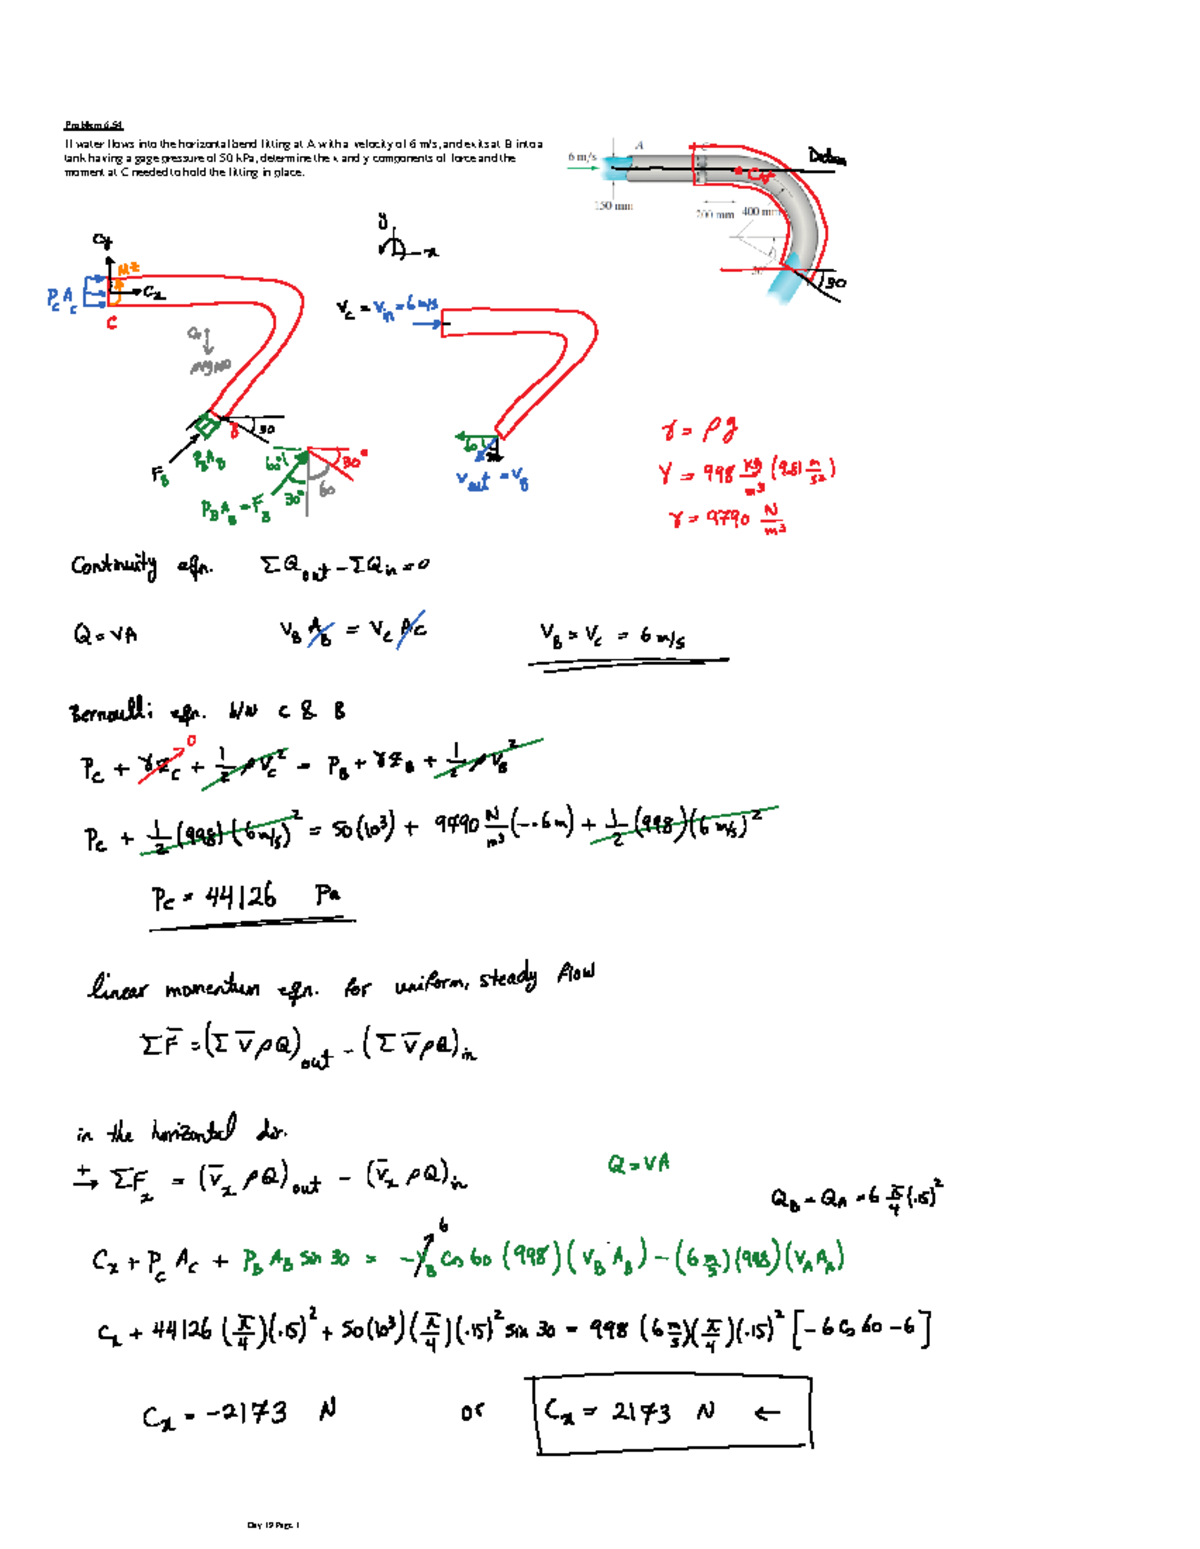 Problem 6.54
If water flows into the horizontal bend fitting at A with a velocity of 6 m/s, and exits at B into a
tank having a gage pressure of 50 kPa, determine the x and y components of force and the
moment at C needed to hold the fitting in place.
6 m/s
A
C
Datum
150 mm
200 mm
400 mm
CG
30
y
x
Cy
Mz
P_C A_C
Cx
C
CG
mg
30
F_B
P_B A_B
60°
30°
30°
60
P_B A_B = F_B
V_C = V_in = 6 m/s
60
V_out = V_B
γ = ρg
γ = 998 kg/m³ (9.81 m/s²)
γ = 9790 N/m³
Continuity eqn. ΣQ_out - ΣQ_in = 0
Q = VA V_B A_B = V_C A_C V_B = V_C = 6 m/s
Bernoulli eqn. b/w C & B
P_C + γz_C + 1/2 ρV_C² = P_B + γz_B + 1/2 ρV_B²
0
P_C + 1/2 (998)(6 m/s)² = 50(10³) + 9790 N/m³ (-.6m) + 1/2 (998)(6 m/s)²
P_C = 44126 Pa
linear momentum eqn. for uniform, steady flow
ΣF̄ = (Σ V̄ρQ)_out - (Σ V̄ρQ)_in
in the horizontal dir.
+→ ΣF_x = (V̄_x ρQ)_out - (V̄_x ρQ)_in
Q = VA
Q_B = Q_A = 6 π/4 (.15)²
C_x + P_C A_C + P_B A_B sin 30 = -V_B cos 60 (998)(V_B A_B) - (6 m/s)(998)(V_A A_A)
6
C_x + 44126 (π/4)(.15)² + 50(10³)(π/4)(.15)² sin 30 = 998 (6 m/s)(π/4)(.15)² [-6 cos 60 - 6]
C_x = -2173 N or C_x = 2173 N ←
Day 19 Page 1